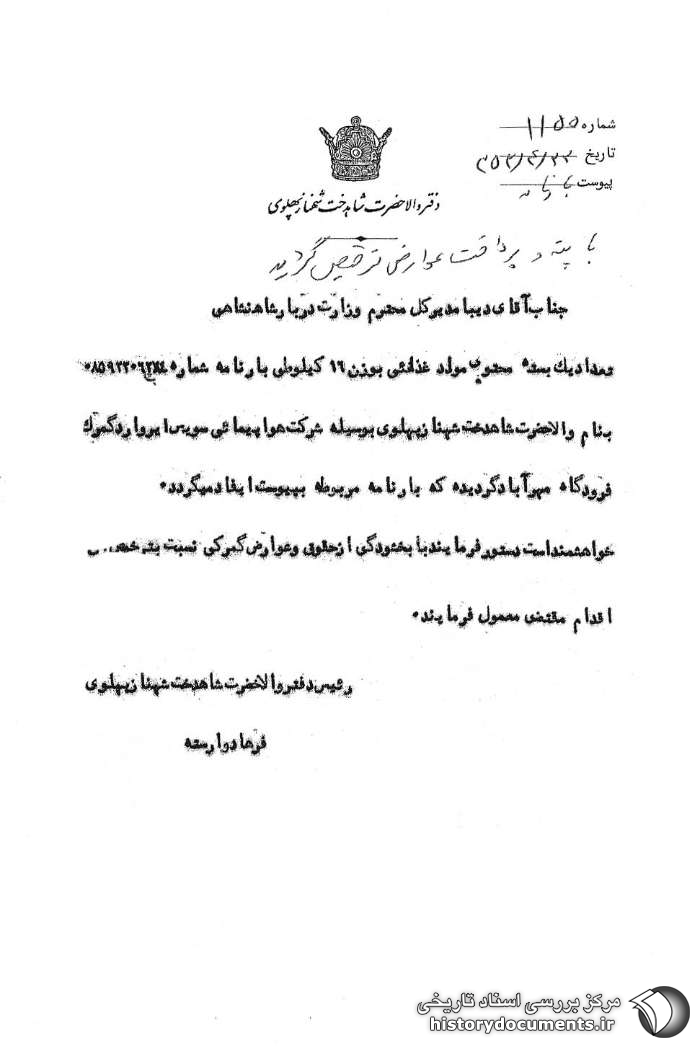 شماره ۱۱۵۵
تاریخ
پیوست
دفتر والاحضرت شاهدخت شهناز پهلوی
با پته و پرداخت عوارض ترخیص گردید
جناب آقای دیبا مدیرکل محترم وزارت دربار شاهنشاهی
تعداد یک بسته محتوی مواد غذائی بوزن ۱۶ کیلوطی بارنامه شماره
بنام والاحضرت شاهدخت شهناز پهلوی بوسیله شرکت هواپیمائی سویس ایر وارد گمرک
فرودگاه مهرآباد گردیده که بارنامه مربوطه بپیوست ایفاد میگردد۰
خواهشمند است دستور فرمایند با بخشودگی از حقوق و عوارض گمرکی نسبت بترخیص
اقدام مقتضی معمول فرمایند۰
رئیس دفتر والاحضرت شاهدخت شهناز پهلوی
فرهاد وارسته
مرکز بررسی اسناد تاریخی
historydocuments.ir